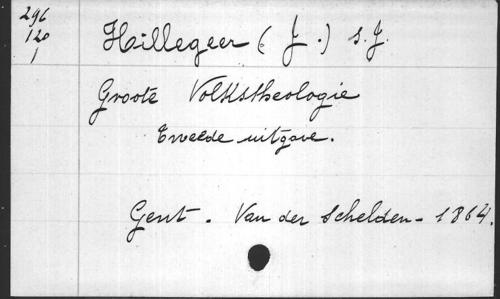 296
120
1
Hillegeer (J.) S.J.
Groote Volkstheologie
Tweede uitgave.
Gent. Van der Schelden - 1864.